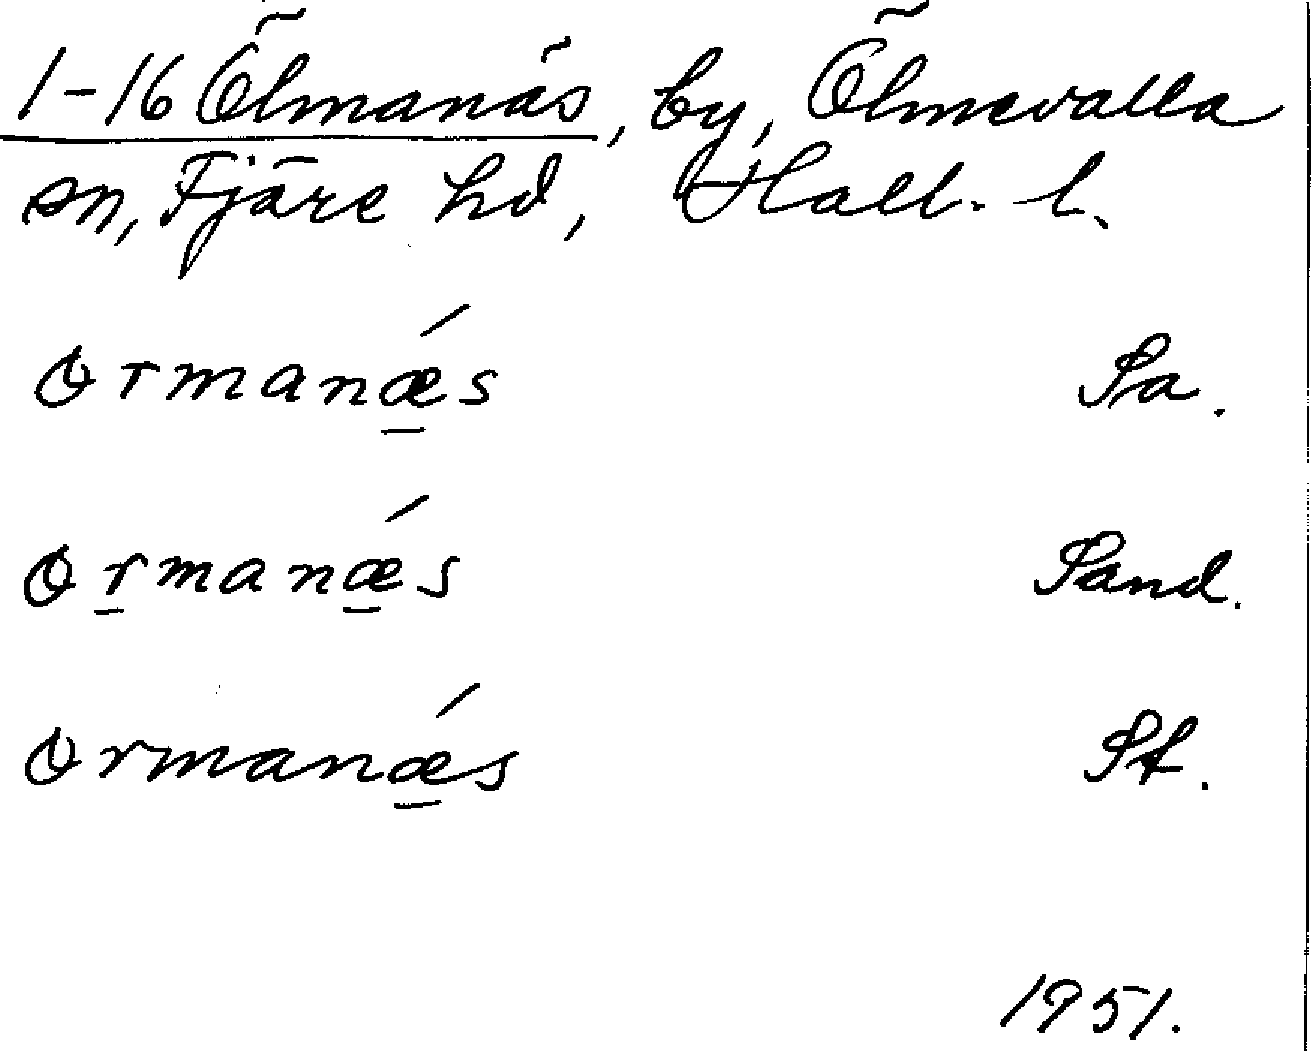 1-16 Ölmanäs, by, Ölmevalla
sn, Fjäre hd, Hall. l.
Ormanǽs Sa.
Ormanǽs Sand.
Ormanǽs St.
1951.